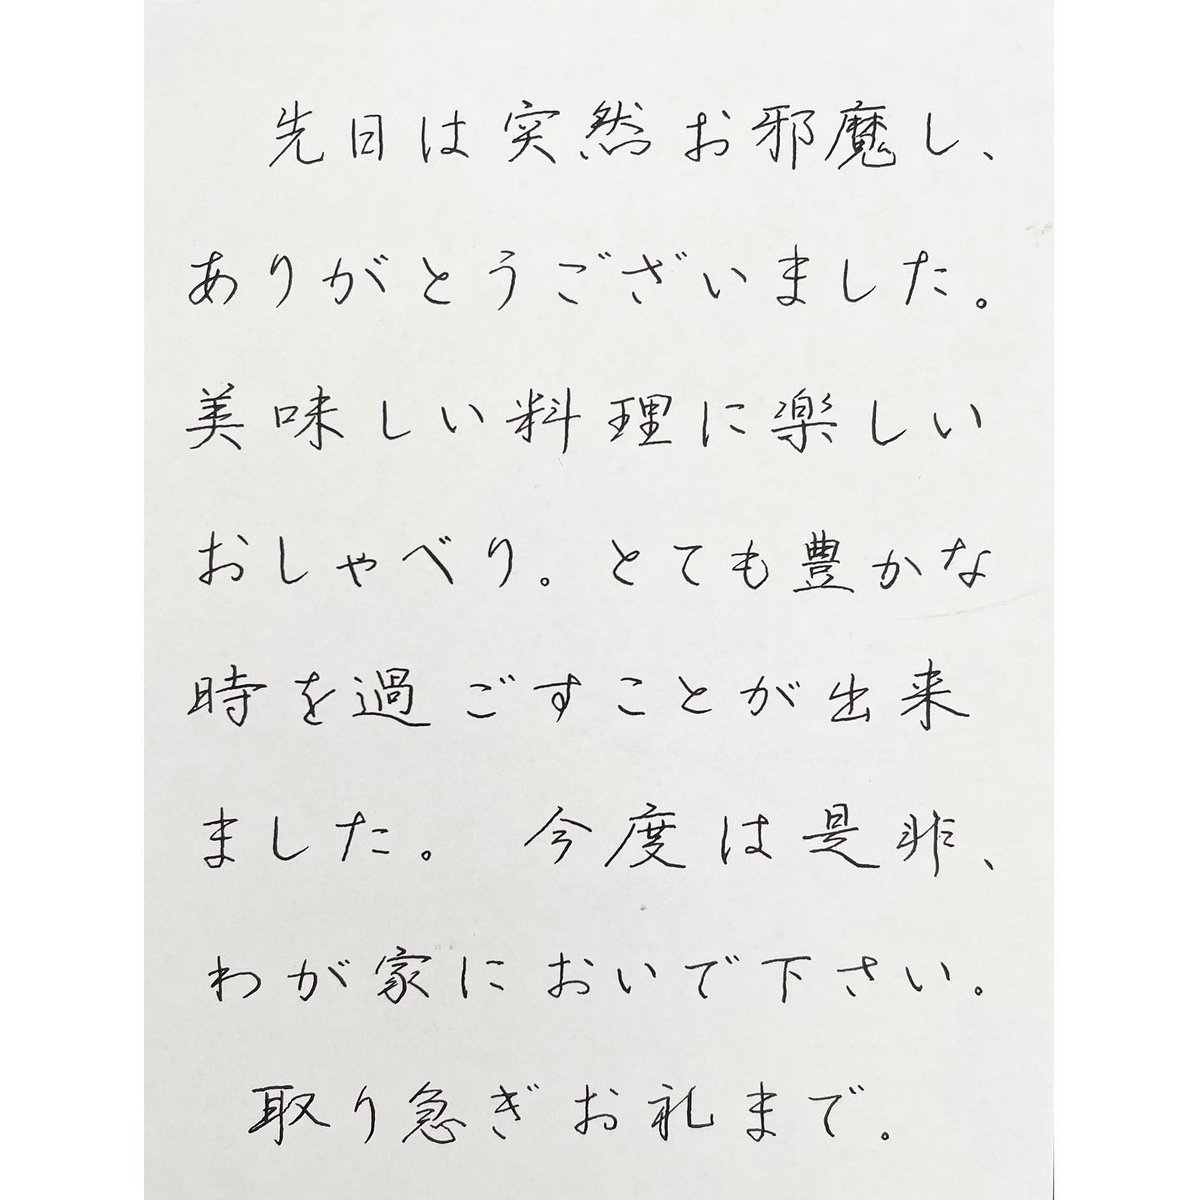 先日は突然お邪魔し、
ありがとうございました。
美味しい料理に楽しい
おしゃべり。とても豊かな
時を過ごすことが出来
ました。 今度は是非、
わが家においで下さい。
取り急ぎお礼まで。